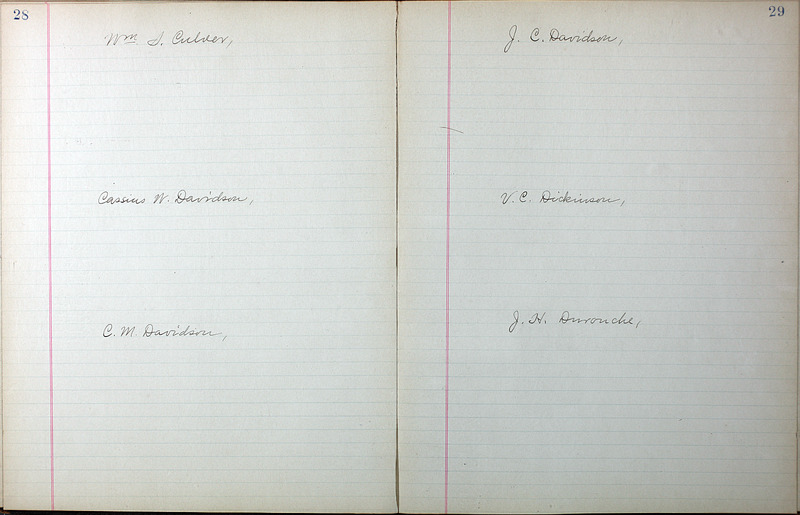 28
Wm S. Culver,
Cassius W. Davidson,
C. M. Davidson,
29
J. C. Davidson,
V. C. Dickinson,
J. H. Durouche,